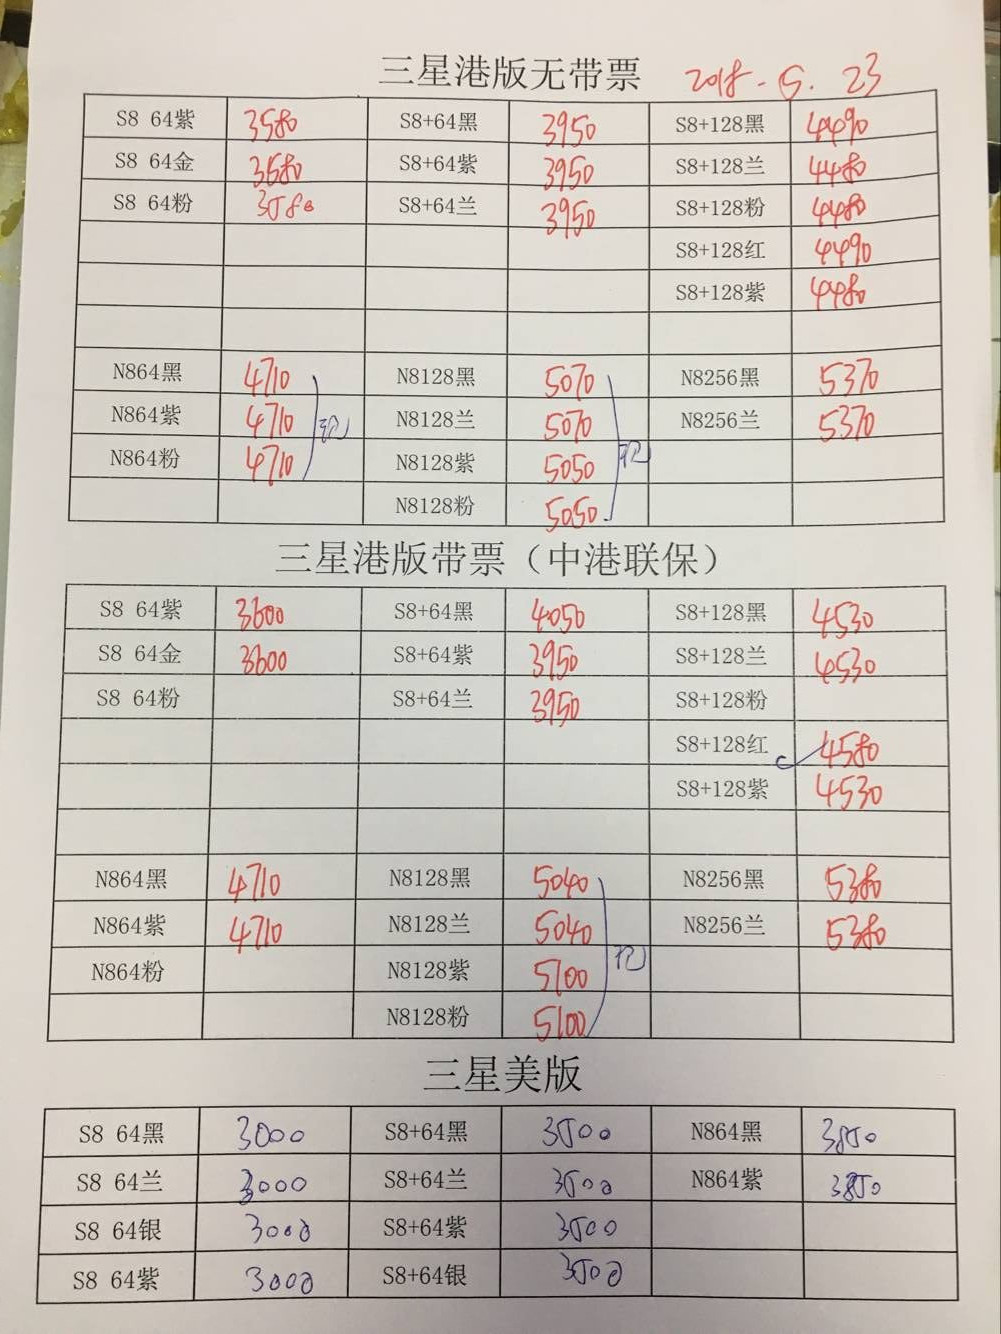 三星港版无带票 2018-5.23
S8 64紫 3580 S8+64黑 3950 S8+128黑 4490
S8 64金 3580 S8+64紫 3950 S8+128兰 4480
S8 64粉 3580 S8+64兰 3950 S8+128粉 4480
S8+128红 4490
S8+128紫 4480
N864黑 4710 N8128黑 5070 N8256黑 5370
N864紫 4710 N8128兰 5070 N8256兰 5370
N864粉 4710 N8128紫 5050
N8128粉 5050
三星港版带票（中港联保）
S8 64紫 3600 S8+64黑 4050 S8+128黑 4530
S8 64金 3600 S8+64紫 3950 S8+128兰 4530
S8 64粉 S8+64兰 3950 S8+128粉
S8+128红 4580
S8+128紫 4530
N864黑 4710 N8128黑 5040 N8256黑 5380
N864紫 4710 N8128兰 5040 N8256兰 5380
N864粉 N8128紫 5100
N8128粉 5100
三星美版
S8 64黑 3000 S8+64黑 3500 N864黑 3850
S8 64兰 3000 S8+64兰 3500 N864紫 3850
S8 64银 3000 S8+64紫 3500
S8 64紫 3000 S8+64银 3500